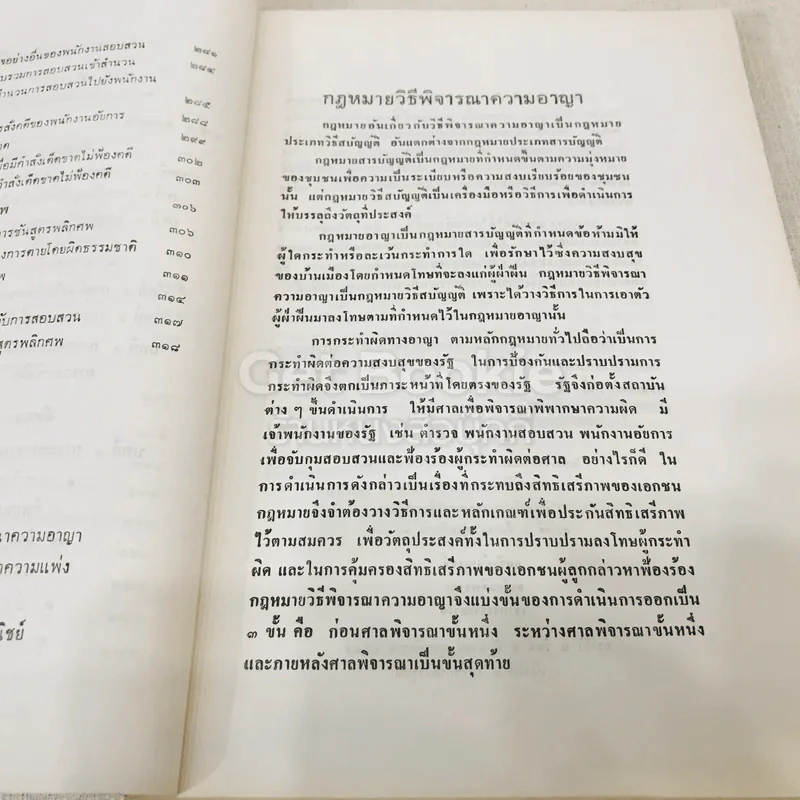 ขอย่างอื่นของพนักงานสอบสวน ๒๘๑
บรวมการสอบสวนเข้าสำนวน ๒๘๔
ำนวนการสอบสวนไปยังพนักงาน
๒๘๕
รสั่งคดีของพนักงานอัยการ ๒๘๘
าด ๒๙๙
มื่อมีคำสั่งเด็ดขาดไม่ฟ้องคดี ๓๐๒
คำสั่งเด็ดขาดไม่ฟ้องคดี ๓๐๓
พ ๓๐๖
การชันสูตรพลิกศพ ๓๐๖
องการตายโดยผิดธรรมชาติ ๓๑๐
พ ๓๑๑
๓๑๔
กับการสอบสวน ๓๑๗
สูตรพลิกศพ ๓๑๘
ณาความอาญา
าความแพ่ง
นิชย์
กฎหมายวิธีพิจารณาความอาญา
กฎหมายอันเกี่ยวกับวิธีพิจารณาความอาญาเป็นกฎหมาย
ประเภทวิธีสบัญญัติ อันแตกต่างจากกฎหมายประเภทสารบัญญัติ
กฎหมายสารบัญญัติเป็นกฎหมายที่กำหนดขึ้นตามความมุ่งหมาย
ของชุมชนเพื่อความเป็นระเบียบหรือความสงบเรียบร้อยของชุมชน
นั้น แต่กฎหมายวิธีสบัญญัติเป็นเครื่องมือหรือวิธีการเพื่อดำเนินการ
ให้บรรลุถึงวัตถุที่ประสงค์
กฎหมายอาญาเป็นกฎหมายสารบัญญัติที่กำหนดข้อห้ามมิให้
ผู้ใดกระทำหรือละเว้นกระทำการใด เพื่อรักษาไว้ซึ่งความสงบสุข
ของบ้านเมืองโดยกำหนดโทษที่จะลงแก่ผู้ฝ่าฝืน กฎหมายวิธีพิจารณา
ความอาญาเป็นกฎหมายวิธีสบัญญัติ เพราะได้วางวิธีการในการเอาตัว
ผู้ฝ่าฝืนมาลงโทษตามที่กำหนดไว้ในกฎหมายอาญานั้น
การกระทำผิดทางอาญา ตามหลักกฎหมายทั่วไปถือว่าเป็นการ
กระทำผิดต่อความสงบสุขของรัฐ ในการป้องกันและปราบปรามการ
กระทำผิดจึงตกเป็นภาระหน้าที่โดยตรงของรัฐ รัฐจึงก่อตั้งสถาบัน
ต่าง ๆ ขึ้นดำเนินการ ให้มีศาลเพื่อพิจารณาพิพากษาความผิด มี
เจ้าพนักงานของรัฐ เช่น ตำรวจ พนักงานสอบสวน พนักงานอัยการ
เพื่อจับกุมสอบสวนและฟ้องร้องผู้กระทำผิดต่อศาล อย่างไรก็ดี ใน
การดำเนินการดังกล่าวเป็นเรื่องที่กระทบถึงสิทธิเสรีภาพของเอกชน
กฎหมายจึงจำต้องวางวิธีการและหลักเกณฑ์เพื่อประกันสิทธิเสรีภาพ
ไว้ตามสมควร เพื่อวัตถุประสงค์ทั้งในการปราบปรามลงโทษผู้กระทำ
ผิด และในการคุ้มครองสิทธิเสรีภาพของเอกชนผู้ถูกกล่าวหาฟ้องร้อง
กฎหมายวิธีพิจารณาความอาญาจึงแบ่งขั้นของการดำเนินการออกเป็น
๓ ขั้น คือ ก่อนศาลพิจารณาขั้นหนึ่ง ระหว่างศาลพิจารณาขั้นหนึ่ง
และภายหลังศาลพิจารณาเป็นขั้นสุดท้าย
Get Bookie